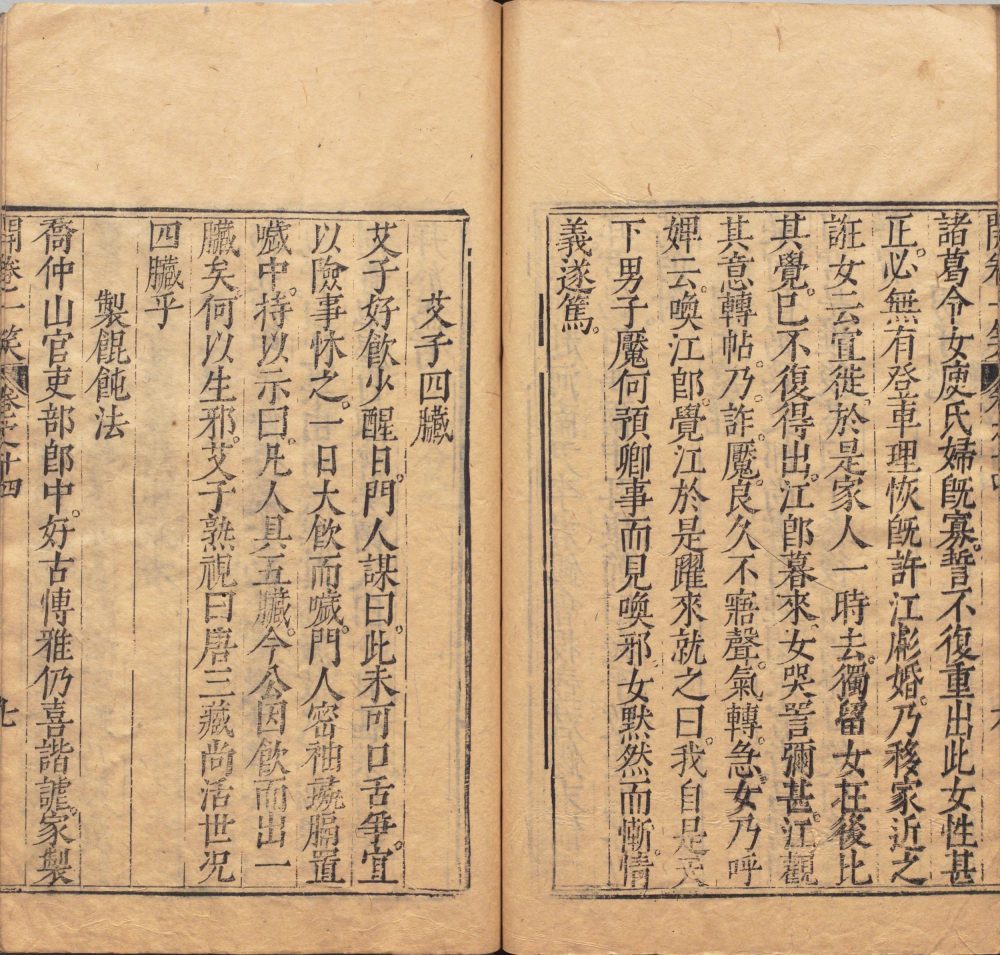 諸葛令女庾氏婦旣寡誓不復重出此女性甚
正必無有登車理恢旣許江彪婚乃移家近之
誑女云宜徙於是家人一時去獨留女在後比
其覺已不復得出江郎暮來女哭詈彌甚江觀
其意轉帖乃詐魘良久不寤聲氣轉急女乃呼
婢云喚江郎覺江於是躍來就之曰我自是天
下男子魘何預卿事而見喚邪女默然而慚情
義遂篤
艾子四臟
艾子好飮少醒日門人謀曰此未可口舌爭宜
以險事怵之一日大飮而噦門人密袖彘膈置
噦中持以示曰凡人具五臟今公因飮而出一
臟矣何以生邪艾子熟視曰唐三藏尚活世況
四臟乎
製餛飩法
喬仲山官吏部郎中好古博雅仍喜諧謔家製
開卷一笑 卷之十四 七